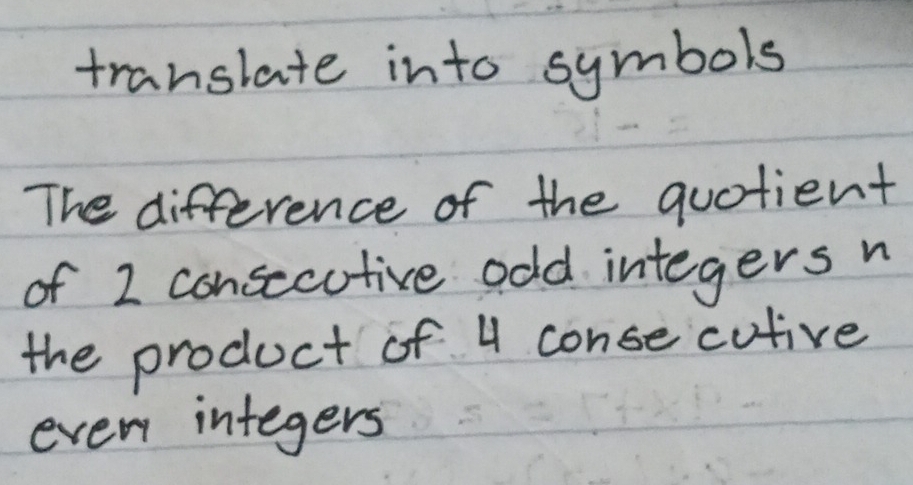 translate into symbols
The difference of the quotient
of 2 consecutive odd integers n
the product of 4 consecutive
even integers